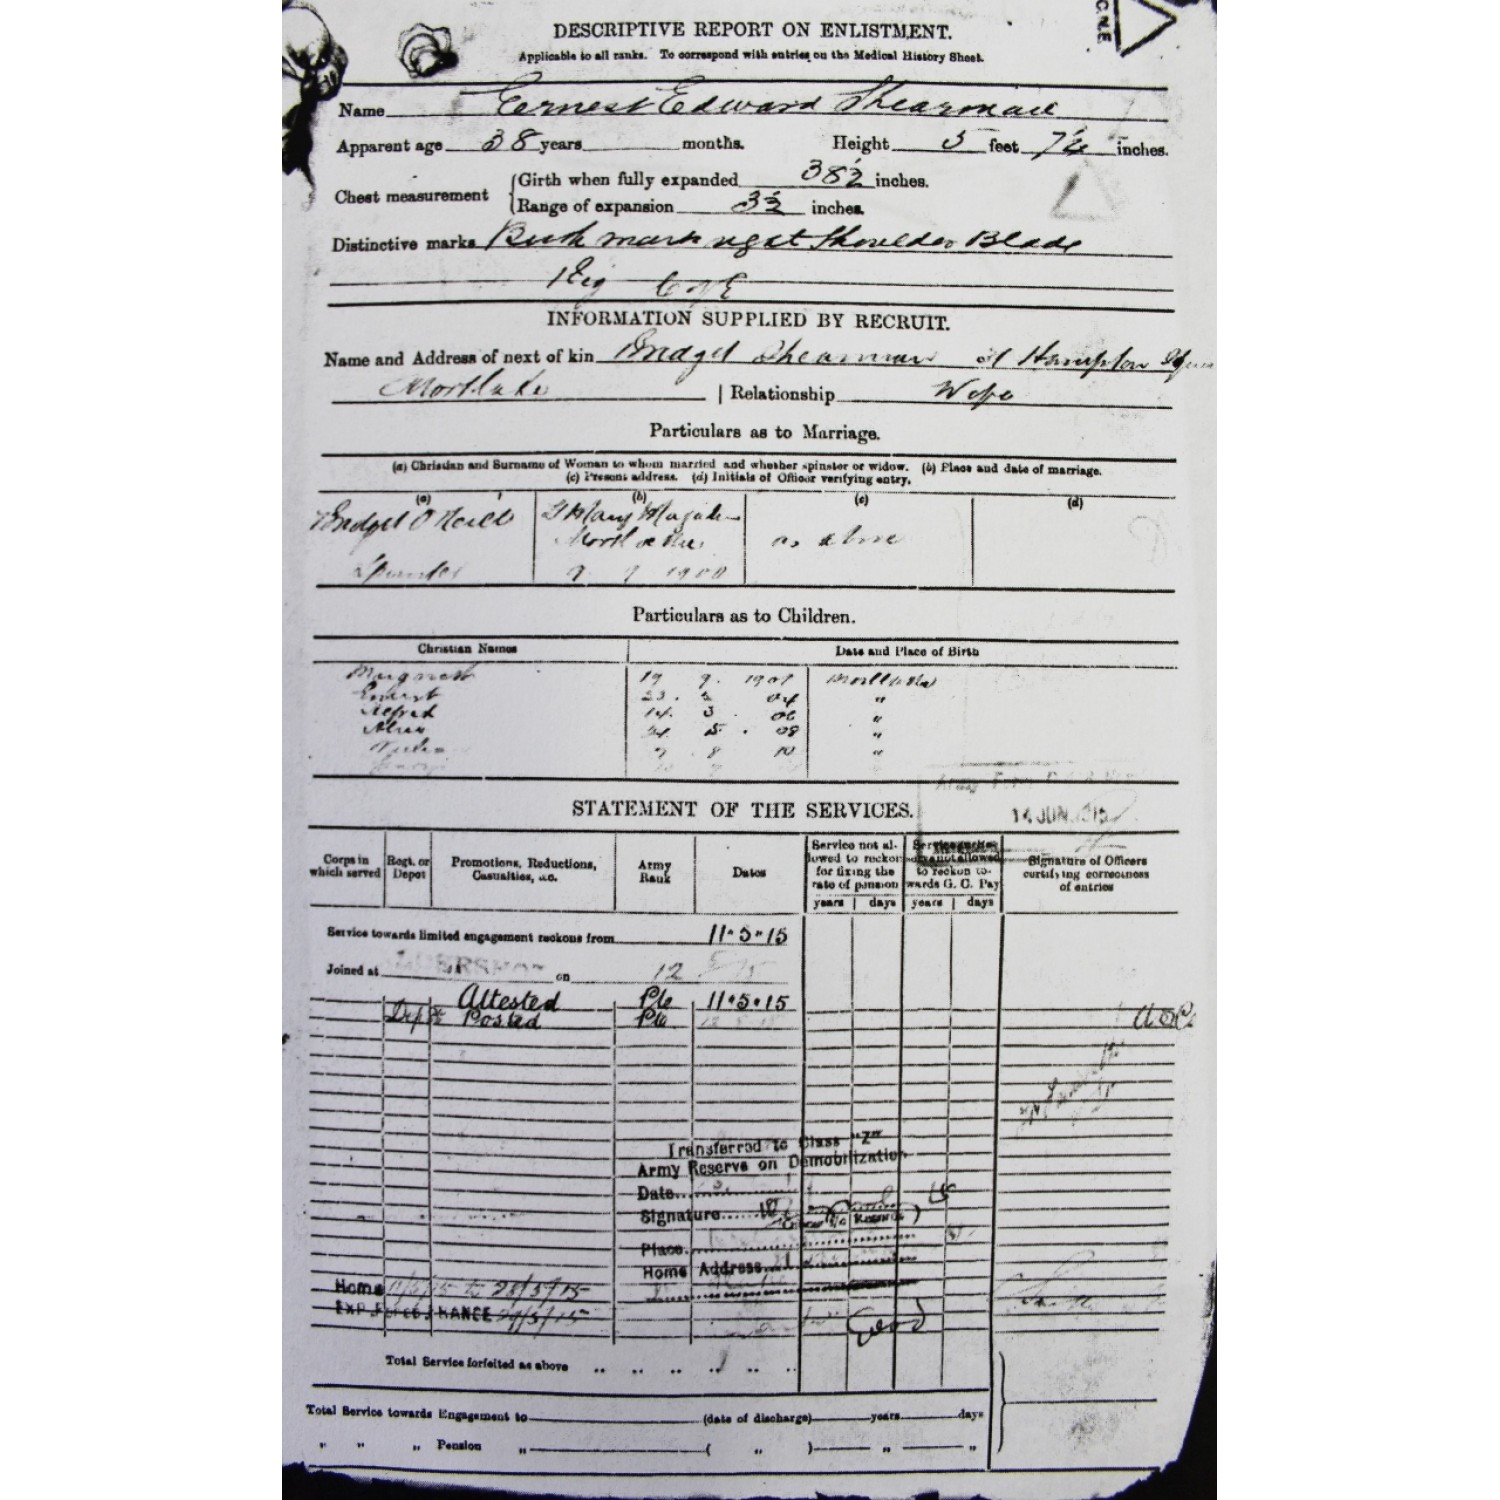 C.N.E.
DESCRIPTIVE REPORT ON ENLISTMENT.
Applicable to all ranks. To correspond with entries on the Medical History Sheet.
Name Ernest Edward Shearman
Apparent age 38 years months. Height 5 feet 7½ inches.
Chest measurement
Girth when fully expanded 38½ inches.
Range of expansion 3½ inches.
Distinctive marks Birth mark right Shoulder Blade
INFORMATION SUPPLIED BY RECRUIT.
Name and Address of next of kin Bridget Shearman Hampton
Mortlake | Relationship Wife
Particulars as to Marriage.
(a) Christian and Surname of Woman to whom married and whether spinster or widow. (b) Place and date of marriage.
(c) Present address. (d) Initials of Officer verifying entry.
(a) (b) (c) (d)
Bridget O'Neill St Mary
Mortlake as above
Spinster 1900
Particulars as to Children.
Christian Names Date and Place of Birth
Margaret 19 9. 1901 Mortlake
Ernest 23. 2 04 "
Alfred 14. 3. 06 "
24 5. 08 "
7. 8 10 "
STATEMENT OF THE SERVICES.
14 JUN 1915
Corps in which served Regt. or Depot Promotions, Reductions, Casualties, &c. Army Rank Dates Service not allowed to reckon for fixing the rate of pension Service not allowed to reckon towards G. C. Pay Signature of Officers certifying correctness of entries
years days years days
Service towards limited engagement reckons from 11.5.15
Joined at ALDERSHOT on 12 5 15
Attested Pte 11.5.15
Depot Posted Pte
Transferred to Class "Z"
Army Reserve on Demobilization
Date
Signature
Place
Home Address
Home 11/5/15 to 28/5/15
EXP. FORCE FRANCE 29/5/15
Total Service forfeited as above
Total Service towards Engagement to (date of discharge) years days
" " " Pension " ( " ) " "